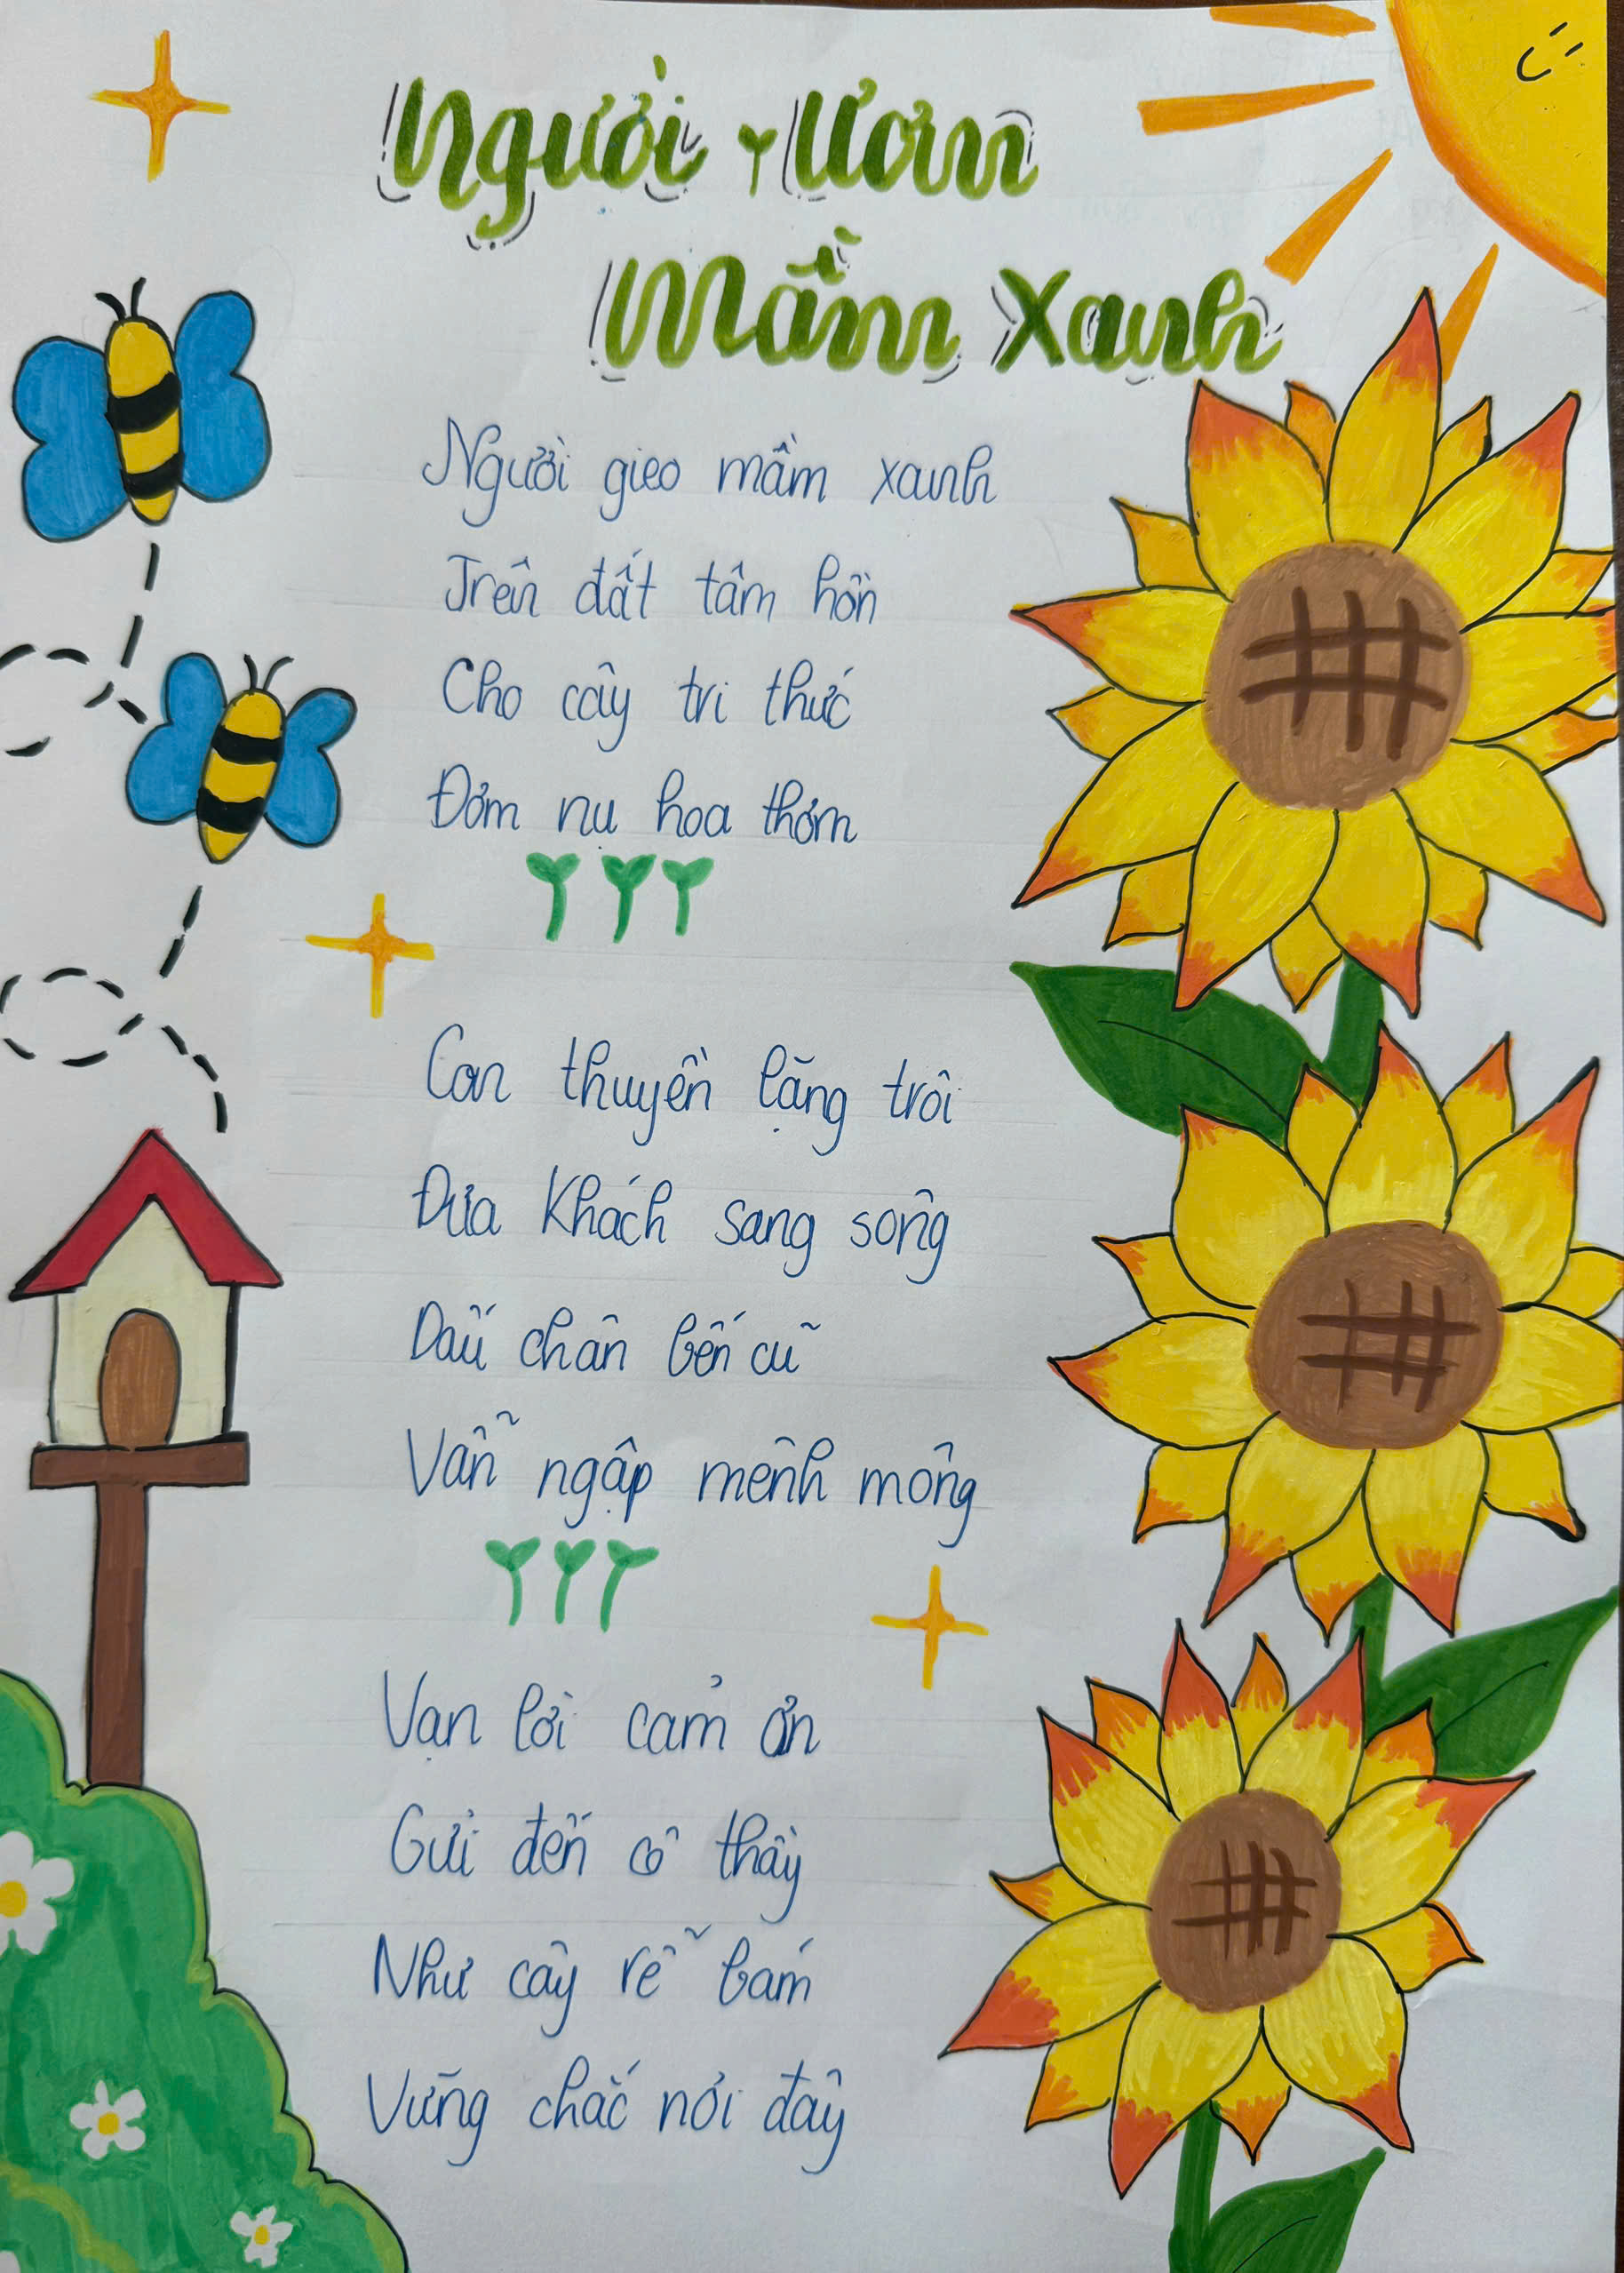 Người Ươm
Mầm Xanh
Người gieo mầm xanh
Trên đất tâm hồn
Cho cây tri thức
Đơm nụ hoa thơm
Con thuyền lặng trôi
Đưa khách sang sông
Dấu chân bến cũ
Vẫn ngập mênh mông
Vạn lời cảm ơn
Gửi đến cô thầy
Như cây rễ bám
Vững chắc nơi đây